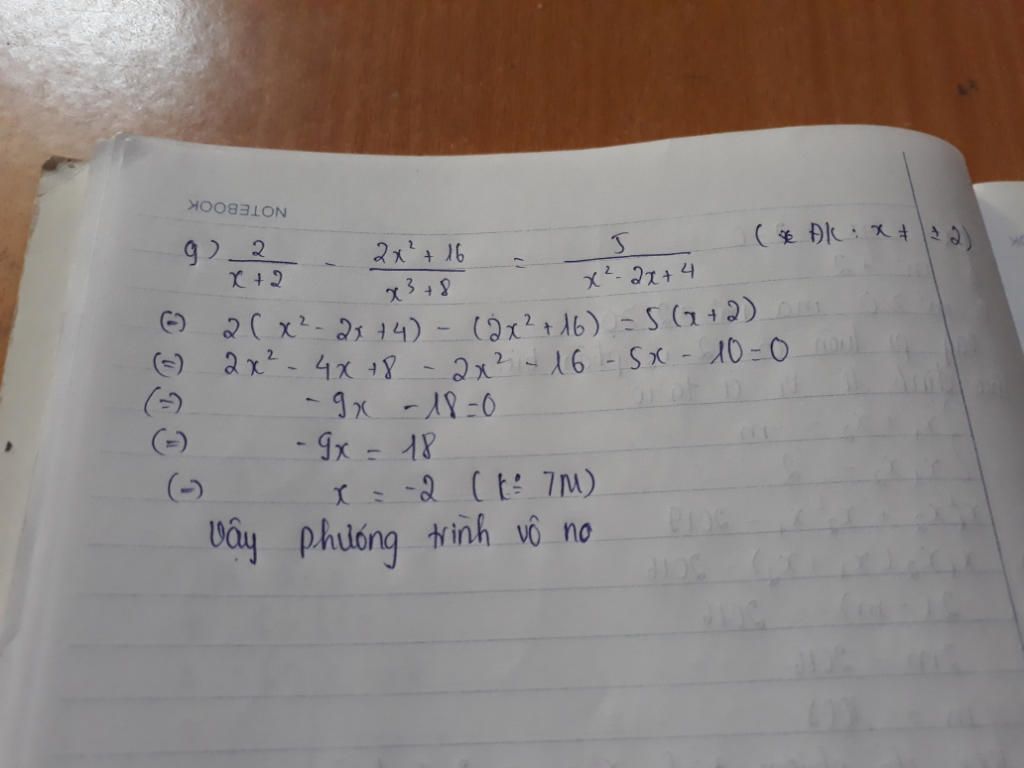 NOTEBOOK
g) 2/(x+2) - (2x² + 16)/(x³+8) = 5/(x²-2x+4) (ĐK : x ≠ ±2)
(=) 2(x² - 2x+4) - (2x²+16) = 5(x+2)
(=) 2x² - 4x+8 - 2x² - 16 - 5x - 10=0
(=) -9x -18=0
(=) -9x = 18
(=) x = -2 (k° TM)
Vậy phương trình vô no